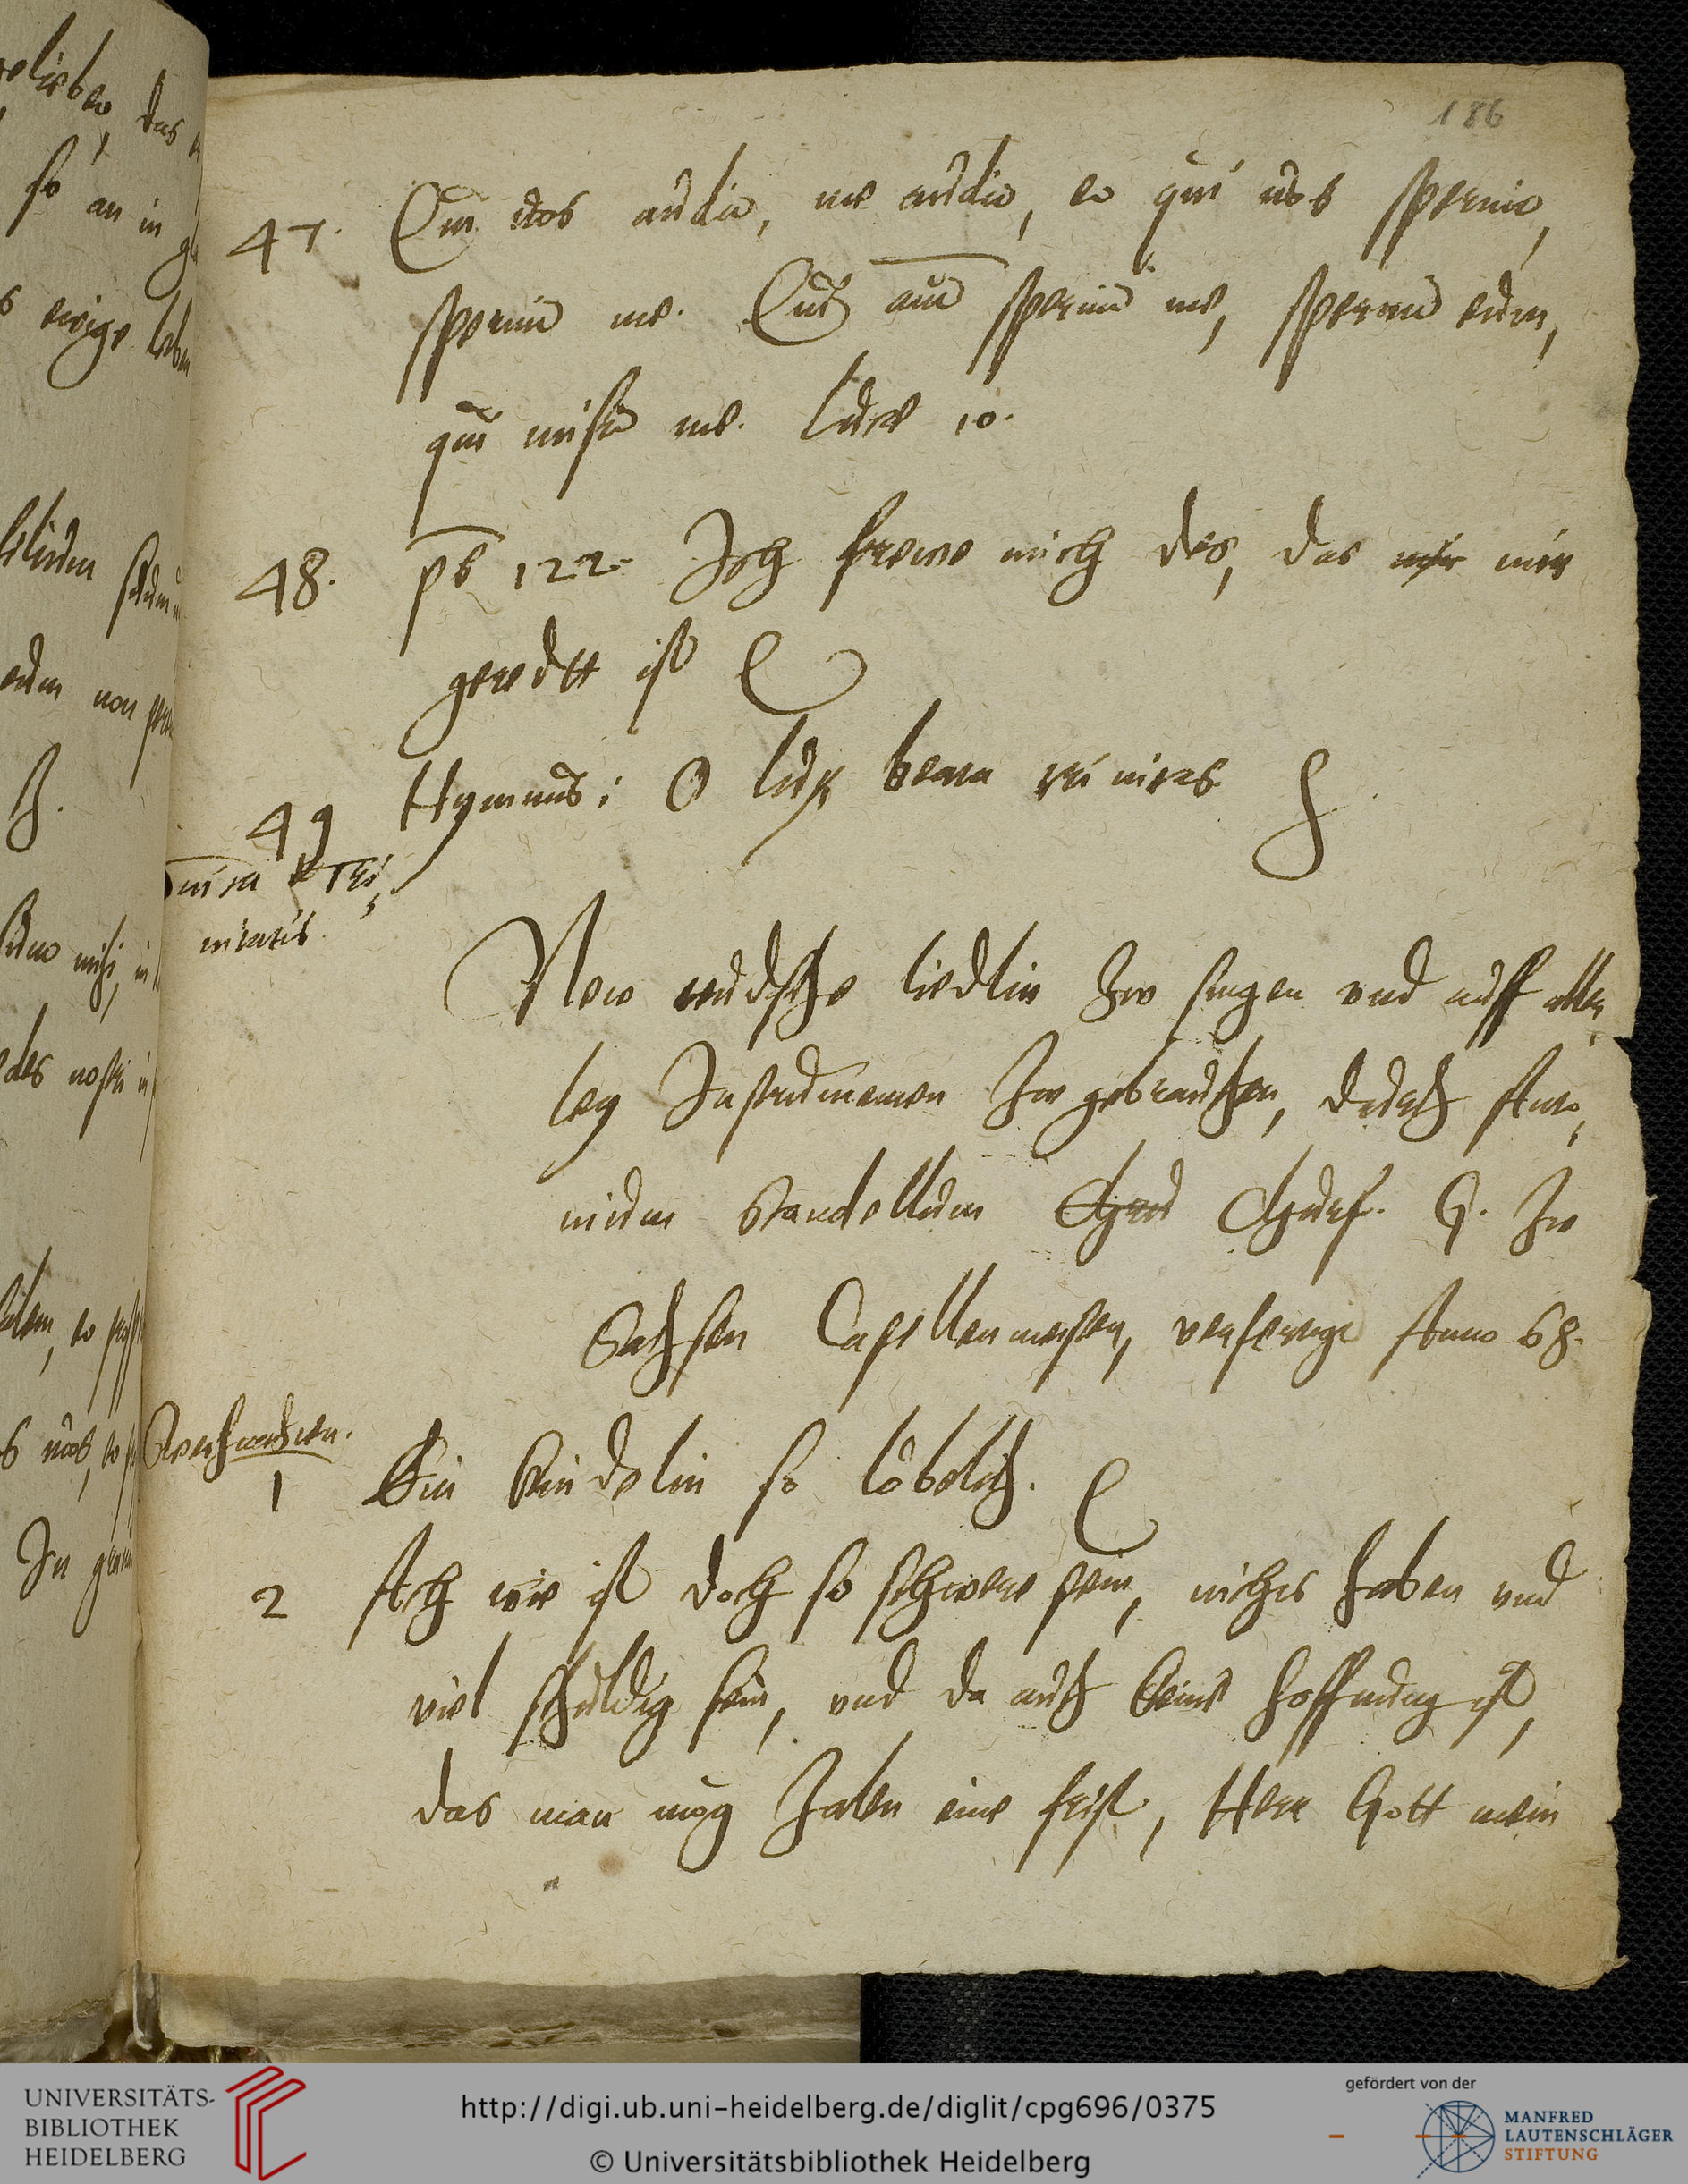 186
47. Qui vos audit, me audit, et qui vos spernit,
spernit me. Qui aut spernit me, spernit eum,
qui misit me. Lucæ 10.
48. ps 122. Ich frewe mich des, das mir mir
geredtt ist
49 Hymnus: O lux beata trinitas
Trinitatis
New teudsche liedlin zw singen vnd auff aller
ley Instrumenten zw gebrauchen, durch Anto,
nium Scandellum Churf. G. zw
Sachsen Capellenmeister, verfertigt Anno 68.
Weihnachten.
1 Ein Kindelin so löbelich.
2 Ach wie ist doch so schwere pein, nichts haben vnd
viel schuldig sein, vnd da auch keine hoffnung ist,
das man mög zalen eine frist, Herr Gott mein
gelieben, das
so an in
ewige leben
eum non
nosth
In
UNIVERSITÄTS-
BIBLIOTHEK
HEIDELBERG
http://digi.ub.uni-heidelberg.de/diglit/cpg696/0375
© Universitätsbibliothek Heidelberg
gefördert von der
MANFRED
LAUTENSCHLÄGER
STIFTUNG